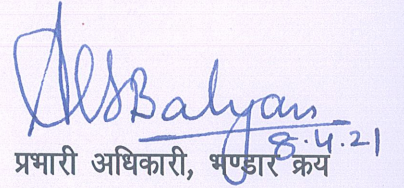 Balyan
8.4.21
प्रभारी अधिकारी, भण्डार क्रय